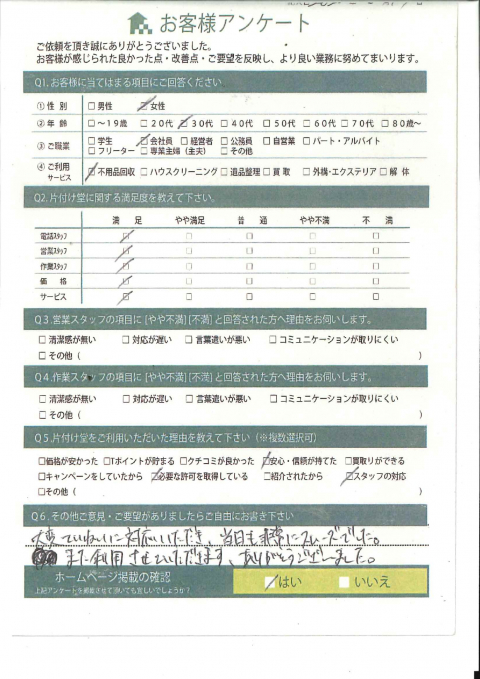 お客様アンケート
ご依頼を頂き誠にありがとうございました。
お客様が感じられた良かった点・改善点・ご要望を反映し、より良い業務に努めてまいります。
Q1.お客様に当てはまる項目にご回答ください
①性 別 □男性 ☑女性
②年 齢 □～19歳 □20代 ☑30代 □40代 □50代 □60代 □70代 □80歳～
③ご職業 □学生 ☑会社員 □経営者 □公務員 □自営業 □パート・アルバイト
□フリーター □専業主婦（主夫） □その他
④ご利用サービス ☑不用品回収 □ハウスクリーニング □遺品整理 □買取 □外構・エクステリア □解体
Q2.片付け堂に関する満足度を教えて下さい。
満足 やや満足 普通 やや不満 不満
電話スタッフ ☑ □ □ □ □
営業スタッフ ☑ □ □ □ □
作業スタッフ ☑ □ □ □ □
価格 ☑ □ □ □ □
サービス ☑ □ □ □ □
Q3.営業スタッフの項目に[やや不満][不満]と回答された方へ理由をお伺いします。
□清潔感が無い □対応が遅い □言葉遣いが悪い □コミュニケーションが取りにくい
□その他（ ）
Q4.作業スタッフの項目に[やや不満][不満]と回答された方へ理由をお伺いします。
□清潔感が無い □対応が遅い □言葉遣いが悪い □コミュニケーションが取りにくい
□その他（ ）
Q5.片付け堂をご利用いただいた理由を教えて下さい（※複数選択可）
□価格が安かった □Tポイントが貯まる □クチコミが良かった ☑安心・信頼が持てた □買取りができる
□キャンペーンをしていたから ☑必要な許可を取得している □紹介されたから ☑スタッフの対応
□その他（ ）
Q6.その他ご意見・ご要望がありましたらご自由にお書き下さい
大変ていねいに対応いただき、当日も非常にスムーズでした。
また利用させていただきます、ありがとうございました。
ホームページ掲載の確認 ☑はい □いいえ
上記アンケートを掲載させて頂いても宜しいでしょうか？